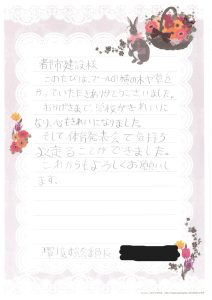 都市建設様
このたびは、プールの横の木や草を
かっていただきありがとうございました。
おかげさまで学校がきれいに
なり、心もきれいになりました。
そして体育発表会で気持ち
よく走ることができました。
これからもよろしくお願いし
ます。
環境委員長